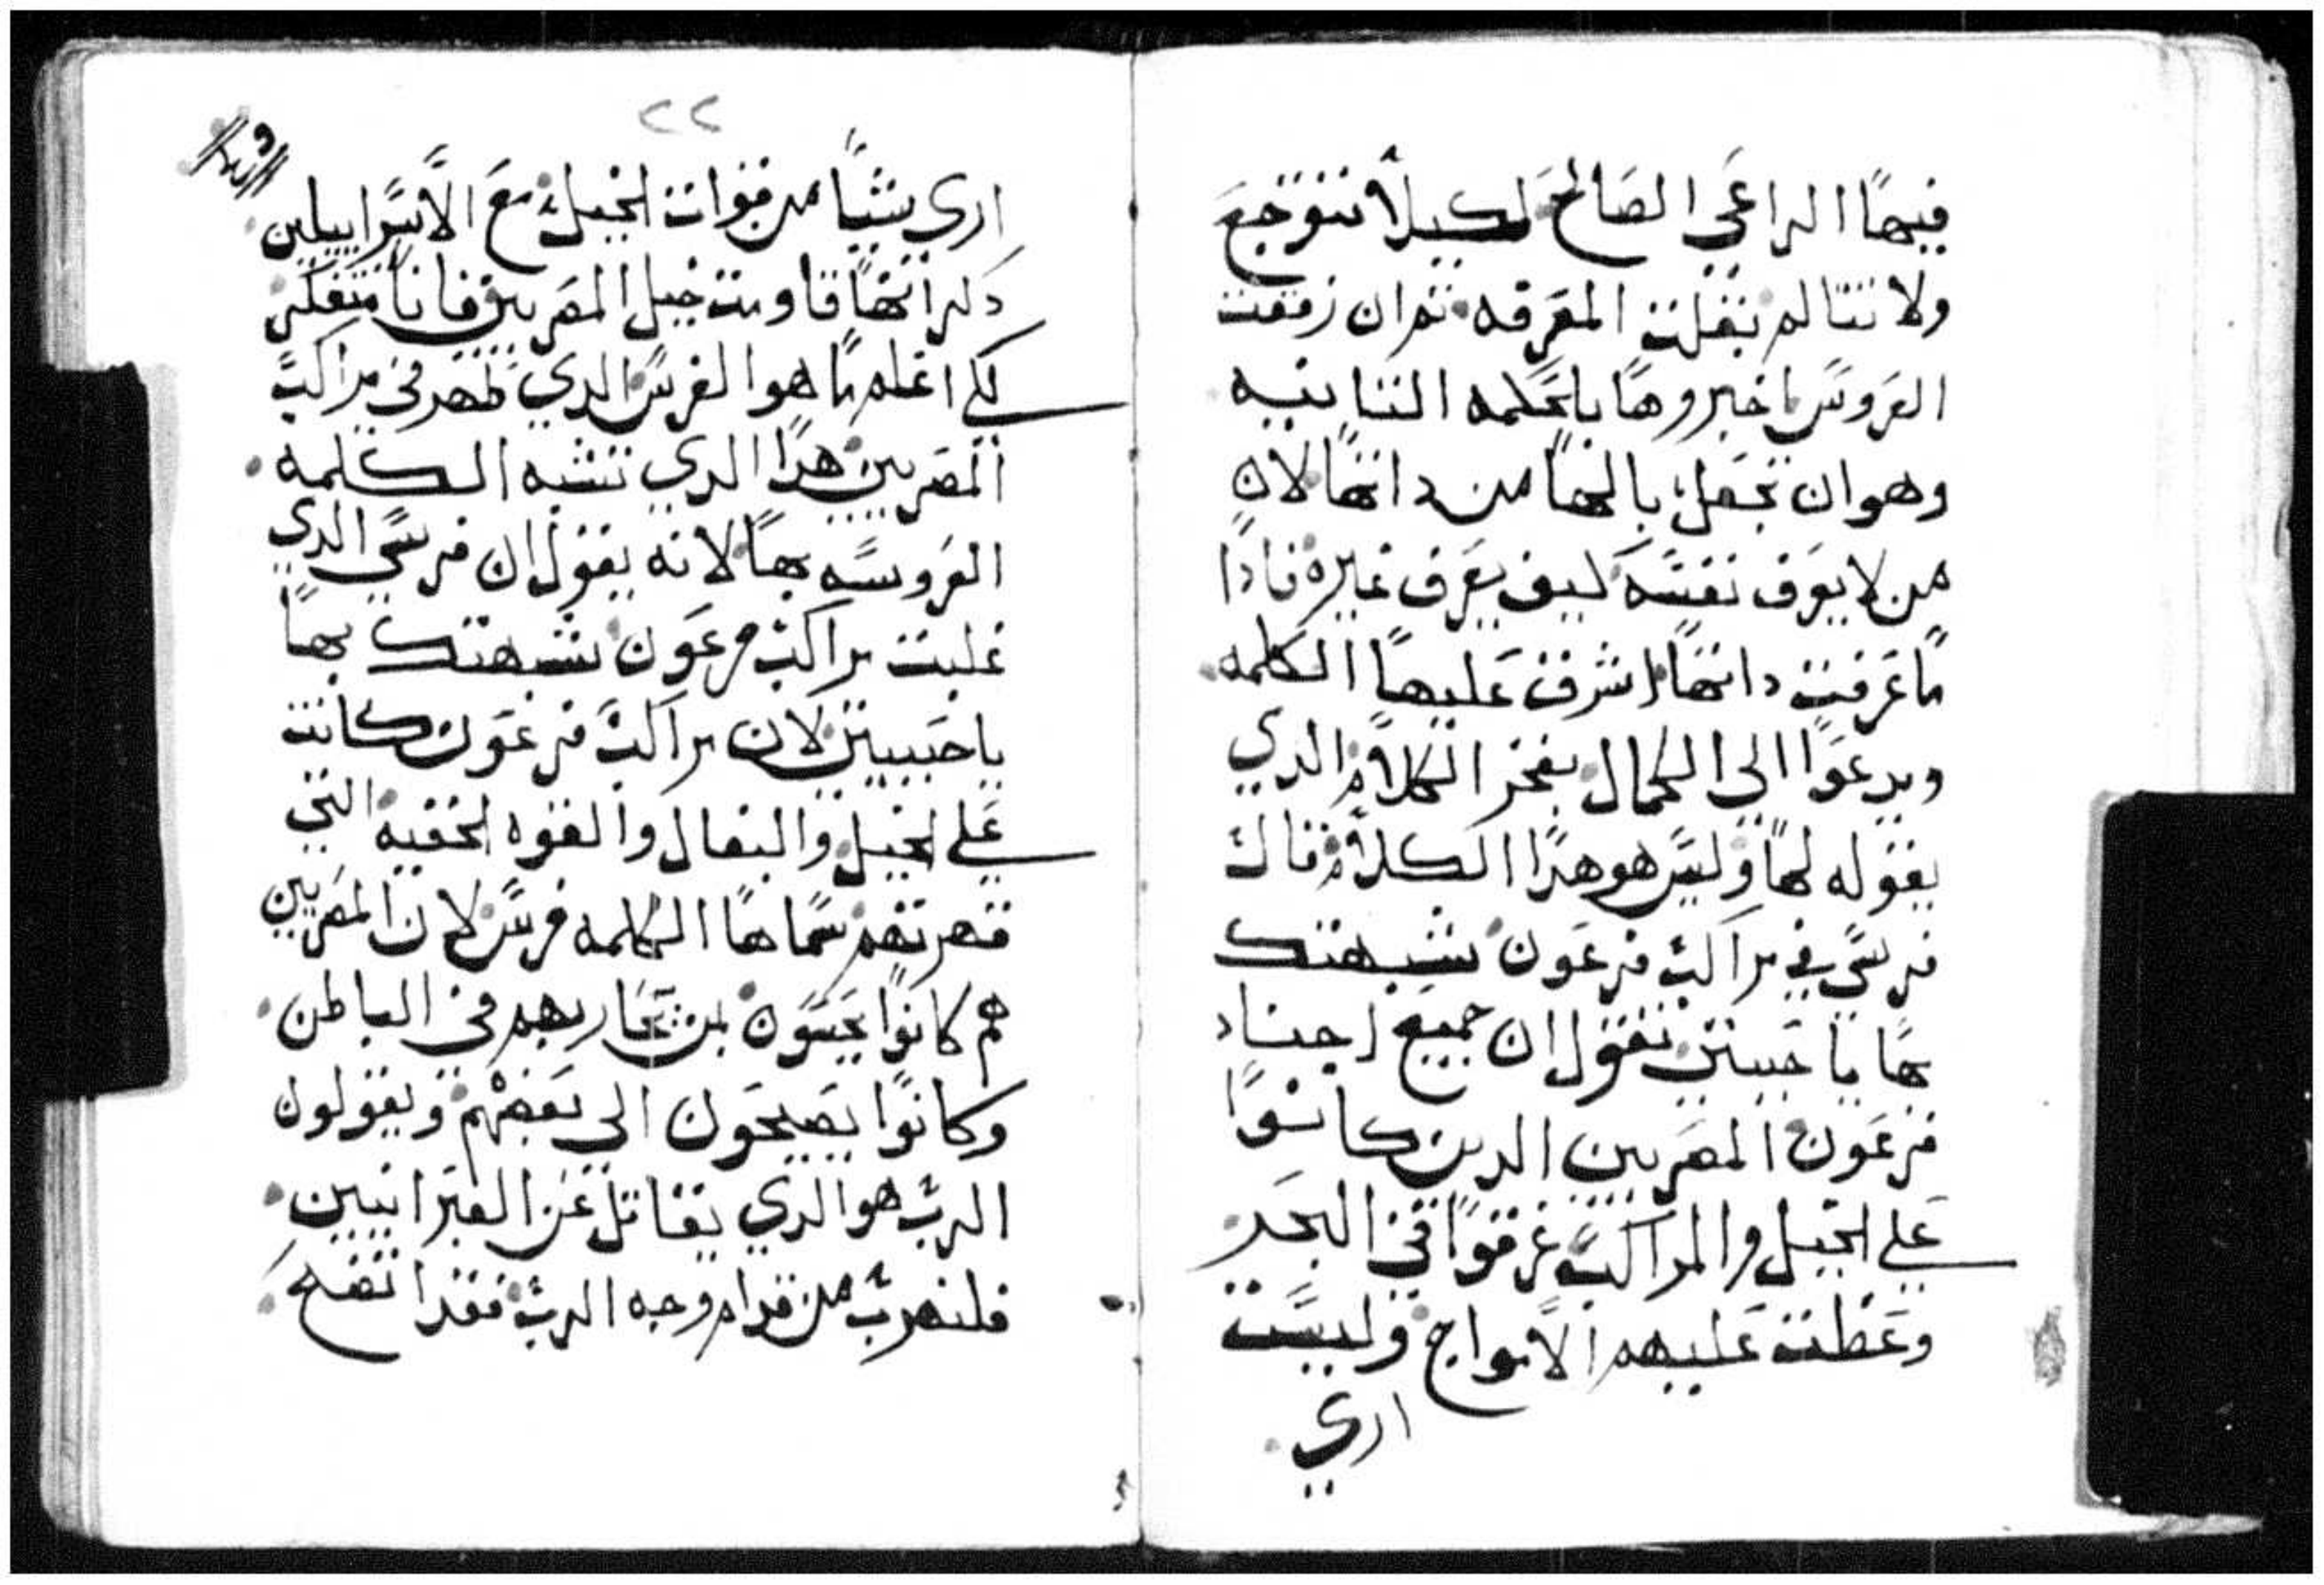 فيها الراعي الصالح لكيلا تتوجع
ولا تتالم بقلت المعرفه ثم ان زفت
العروس اخبروها بالحكمه الثانيه
وهو ان تجعل بالها من داتها لان
من لا يعرف نفسه كيف يعرف غيره فادا
ما عرفت داتها اشرف عليها الكلمه
ويدعوا الي الكمال بفخر الكلام الدي
يقوله لها وليس هو هدا الكلام قال
فرسي في مراكب فرعون شبهتك
بها يا حبيبتي تقول ان جميع اجناد
فرعون المصريين الدين كانوا
علي الخيل والمراكب غرقوا في البحر
وغطت عليهم الامواج وليست
اري
٢٢
اري شيا من قوات الخيل مع الاسراييلين
دكر انها قاومت خيل المصريين فانا متفكر
لكي اعلم ما هوا الفرس الدي ظهر في مراكب
المصريين هدا الدي تشبه الكلمه
العروسه بها لانه يقول ان فرسي الدي
غلبت مراكب فرعون شبهتك بها
يا حبيبتي لان مراكب فرعون كانت
علي الخيل والبغال والقوه الخفيه التي
قهرتهم سماها الكلمه فرس لان المصريين
هم كانوا يحسون بمن يحاربهم في الباطن
وكانوا يصيحون الي بعضهم ويقولون
الرب هو الدي يقاتل عن العبرانيين
فلنهرب من قدام وجه الرب فقد اتضح